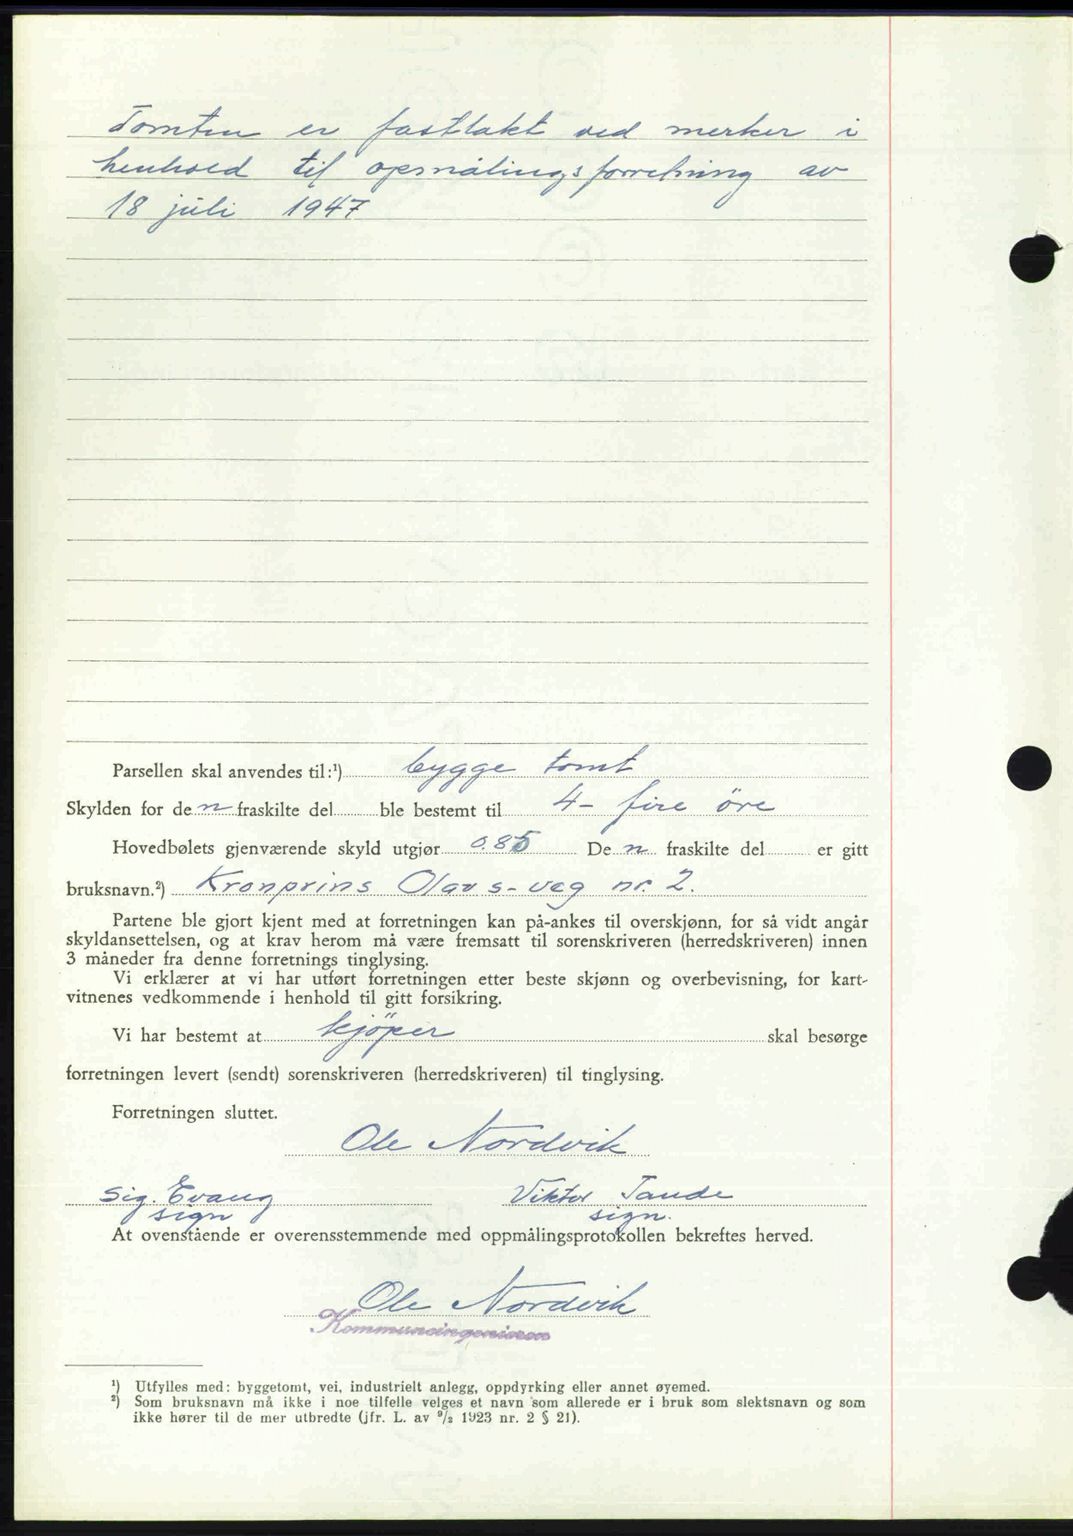 Tomten er fastlakt ved merker i
henhold til opsmålingsforretning av
18 juli 1947
Parsellen skal anvendes til:¹) bygge tomt
Skylden for de n fraskilte del ble bestemt til 4- fire öre
Hovedbølets gjenværende skyld utgjør 0.85 De n fraskilte del er gitt
bruksnavn.²) Kronprins Olavs-veg nr. 2.
Partene ble gjort kjent med at forretningen kan på-ankes til overskjønn, for så vidt angår
skyldansettelsen, og at krav herom må være fremsatt til sorenskriveren (herredskriveren) innen
3 måneder fra denne forretnings tinglysing.
Vi erklærer at vi har utført forretningen etter beste skjønn og overbevisning, for kart-
vitnenes vedkommende i henhold til gitt forsikring.
Vi har bestemt at kjöper skal besørge
forretningen levert (sendt) sorenskriveren (herredskriveren) til tinglysing.
Forretningen sluttet.
Ole Nordvik
Sig. Evang Viktor Tande
sign sign.
At ovenstående er overensstemmende med oppmålingsprotokollen bekreftes herved.
Ole Nordvik
Kommuneingeniøren
¹) Utfylles med: byggetomt, vei, industrielt anlegg, oppdyrking eller annet øyemed.
²) Som bruksnavn må ikke i noe tilfelle velges et navn som allerede er i bruk som slektsnavn og som
ikke hører til de mer utbredte (jfr. L. av ⁹/₂ 1923 nr. 2 § 21).